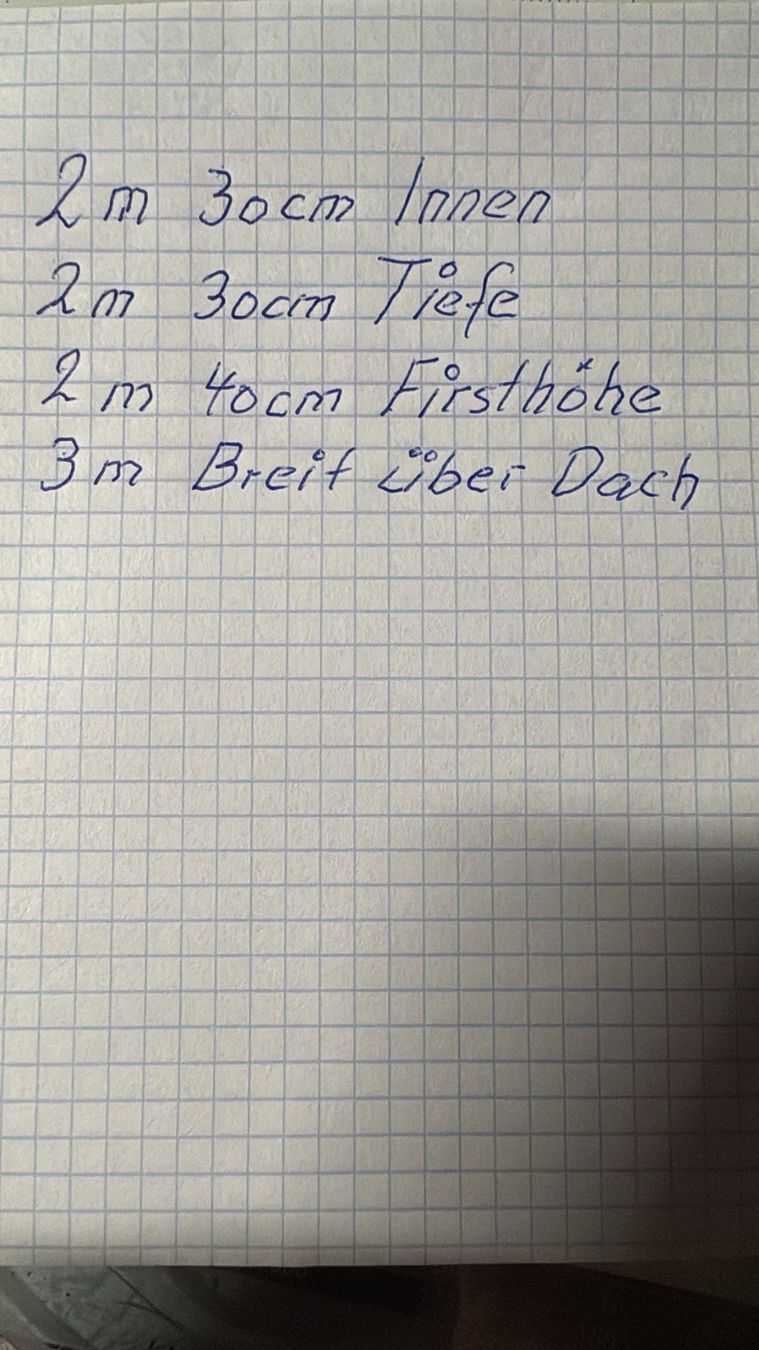 2 m 30cm Innen
2m 30cm Tiefe
2 m 40cm Firsthöhe
3m Breit über Dach